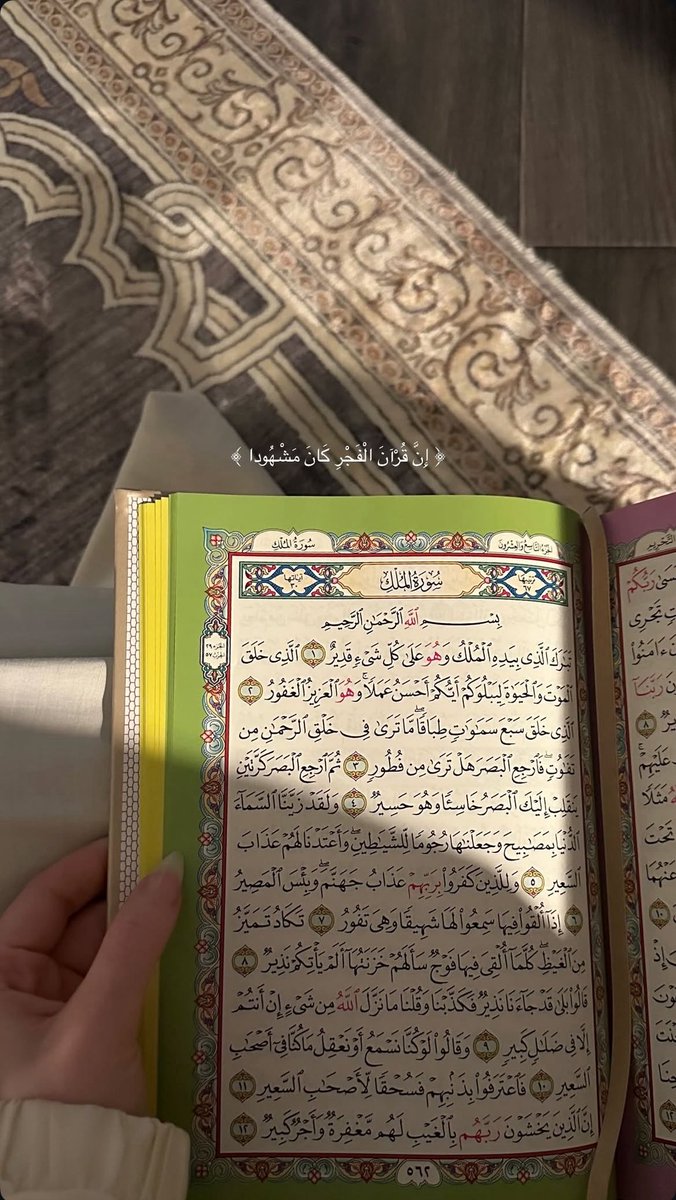 ﴿ إِنَّ قُرْآنَ الْفَجْرِ كَانَ مَشْهُودا ﴾
الجزء التاسع والعشرون
سورة الملك
ترتيبها ٦٧
سُورَةُ المُلْكِ
آياتها ٣٠
الجزء ٢٩
بِسْمِ ٱللَّهِ ٱلرَّحْمَٰنِ ٱلرَّحِيمِ
تَبَٰرَكَ ٱلَّذِى بِيَدِهِ ٱلْمُلْكُ وَهُوَ عَلَىٰ كُلِّ شَىْءٍ قَدِيرٌ ١ ٱلَّذِى خَلَقَ
ٱلْمَوْتَ وَٱلْحَيَوٰةَ لِيَبْلُوَكُمْ أَيُّكُمْ أَحْسَنُ عَمَلًا ۚ وَهُوَ ٱلْعَزِيزُ ٱلْغَفُورُ ٢
ٱلَّذِى خَلَقَ سَبْعَ سَمَٰوَٰتٍ طِبَاقًا ۖ مَّا تَرَىٰ فِى خَلْقِ ٱلرَّحْمَٰنِ مِن
تَفَٰوُتٍ ۖ فَٱرْجِعِ ٱلْبَصَرَ هَلْ تَرَىٰ مِن فُطُورٍ ٣ ثُمَّ ٱرْجِعِ ٱلْبَصَرَ كَرَّتَيْنِ
يَنقَلِبْ إِلَيْكَ ٱلْبَصَرُ خَاسِئًا وَهُوَ حَسِيرٌ ٤ وَلَقَدْ زَيَّنَّا ٱلسَّمَآءَ
ٱلدُّنْيَا بِمَصَٰبِيحَ وَجَعَلْنَٰهَا رُجُومًا لِّلشَّيَٰطِينِ ۖ وَأَعْتَدْنَا لَهُمْ عَذَابَ
ٱلسَّعِيرِ ٥ وَلِلَّذِينَ كَفَرُوا۟ بِرَبِّهِمْ عَذَابُ جَهَنَّمَ ۖ وَبِئْسَ ٱلْمَصِيرُ
٦ إِذَآ أُلْقُوا۟ فِيهَا سَمِعُوا۟ لَهَا شَهِيقًا وَهِىَ تَفُورُ ٧ تَكَادُ تَمَيَّزُ
مِنَ ٱلْغَيْظِ ۖ كُلَّمَآ أُلْقِىَ فِيهَا فَوْجٌ سَأَلَهُمْ خَزَنَتُهَآ أَلَمْ يَأْتِكُمْ نَذِيرٌ ٨
قَالُوا۟ بَلَىٰ قَدْ جَآءَنَا نَذِيرٌ فَكَذَّبْنَا وَقُلْنَا مَا نَزَّلَ ٱللَّهُ مِن شَىْءٍ إِنْ أَنتُمْ
إِلَّا فِى ضَلَٰلٍ كَبِيرٍ ٩ وَقَالُوا۟ لَوْ كُنَّا نَسْمَعُ أَوْ نَعْقِلُ مَا كُنَّا فِىٓ أَصْحَٰبِ
ٱلسَّعِيرِ ١٠ فَٱعْتَرَفُوا۟ بِذَنۢبِهِمْ فَسُحْقًا لِّأَصْحَٰبِ ٱلسَّعِيرِ ١١
إِنَّ ٱلَّذِينَ يَخْشَوْنَ رَبَّهُم بِٱلْغَيْبِ لَهُم مَّغْفِرَةٌ وَأَجْرٌ كَبِيرٌ ١٢
٥٦٢